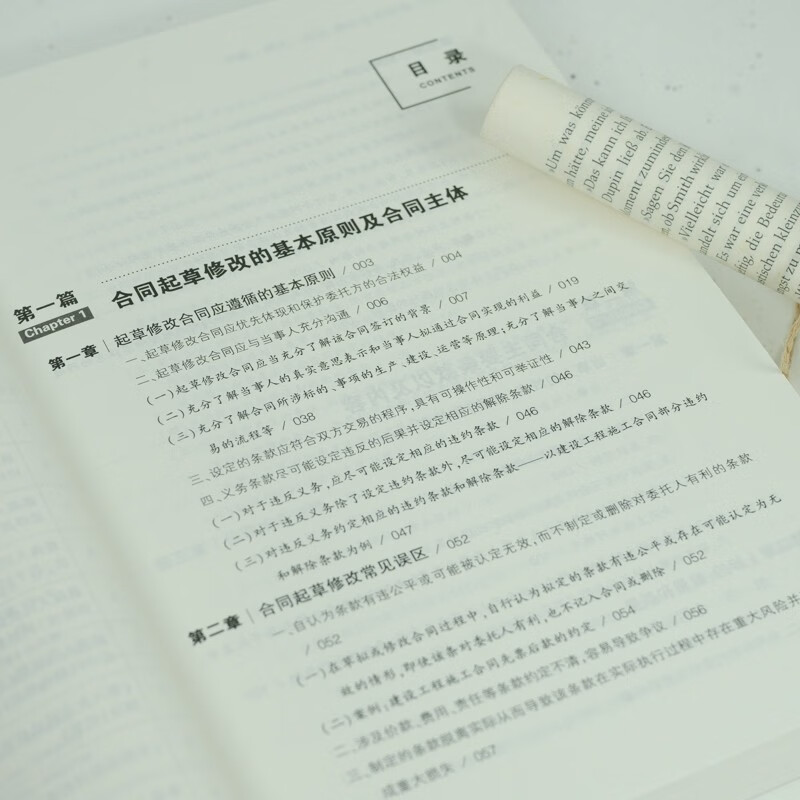 目 录
CONTENTS
第一篇
Chapter 1
合同起草修改的基本原则及合同主体
第一章 起草修改合同应遵循的基本原则 / 003
一、起草修改合同应优先体现和保护委托方的合法权益 / 004
二、起草修改合同应与当事人充分沟通 / 006
(一)起草修改合同应当充分了解该合同签订的背景 / 007
(二)充分了解当事人的真实意思表示和当事人拟通过合同实现的利益 / 019
(三)充分了解合同所涉标的、事项的生产、建设、运营等原理;充分了解当事人之间交
易的流程等 / 038
三、设定的条款应符合双方交易的程序,具有可操作性和可举证性 / 043
四、义务条款尽可能设定违反的后果并设定相应的解除条款 / 046
(一)对于违反义务,应尽可能设定相应的违约条款 / 046
(二)对于违反义务除了设定违约条款外,尽可能设定相应的解除条款 / 046
(三)对违反义务约定相应的违约条款和解除条款——以建设工程施工合同部分违约
和解除条款为例 / 047
第二章 合同起草修改常见误区 / 052
一、自认为条款有违公平或可能被认定无效,而不制定或删除对委托人有利的条款
/ 052
(一)在草拟或修改合同过程中,自行认为拟定的条款有违公平或存在可能认定为无
效的情形,即使该条对委托人有利,也不记入合同或删除 / 052
(二)案例:建设工程施工合同先票后款的约定 / 054
二、涉及价款、费用、责任等条款约定不清,容易导致争议 / 056
三、制定的条款脱离实际从而导致该条款在实际执行过程中存在重大风险并
成重大损失 / 057
»Um was könn
hätte, meine
»Das kann ich
Dupin ließ ab.
oment zumind
»Sagen Sie den
ab Smith wirk
»Vielleicht war
ndelt sich um e
Es war eine ver
ftig, die Bedeu
stischen kleinz
ngst zu